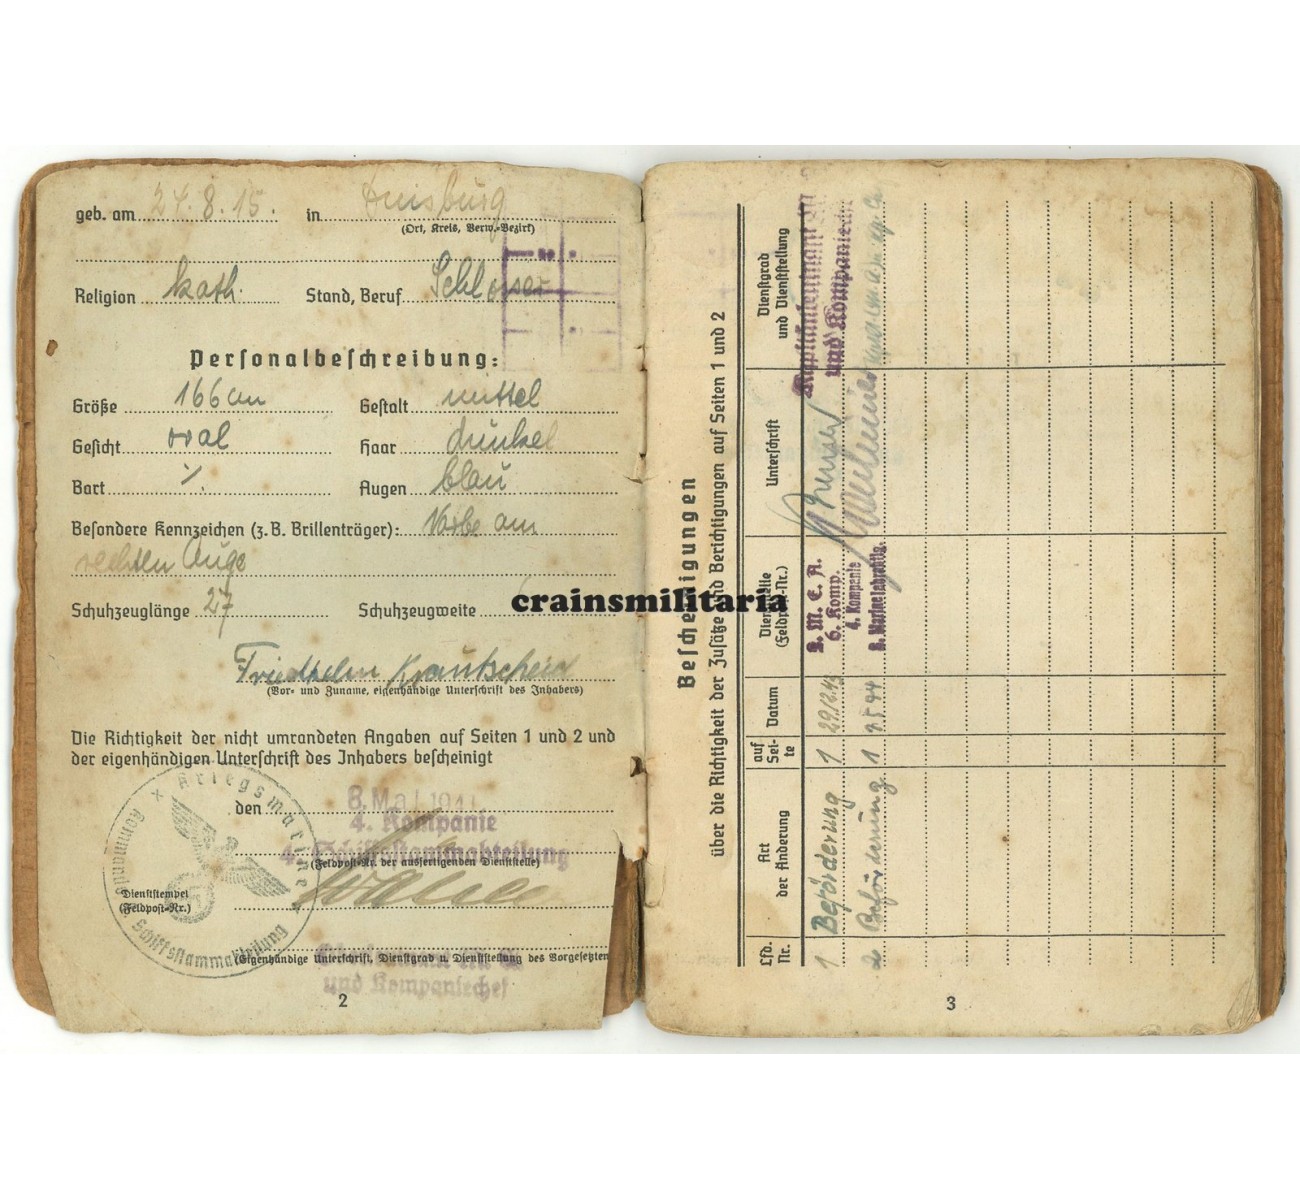 geb. am 24. 8. 15. in Duisburg
(Ort, Kreis, Verw.-Bezirk)
Religion kath. Stand, Beruf Schlosser
Personalbeschreibung:
Größe 166 cm Gestalt mittel
Gesicht oval Haar dunkel
Bart ·/. Augen blau
Besondere Kennzeichen (z. B. Brillenträger): Narbe am
rechten Auge
Schuhzeuglänge 27 Schuhzeugweite
crainsmilitaria
Friedhelm Krautscheid
(Vor- und Zuname, eigenhändige Unterschrift des Inhabers)
Die Richtigkeit der nicht umrandeten Angaben auf Seiten 1 und 2 und
der eigenhändigen Unterschrift des Inhabers bescheinigt
den 8. Mai 1941
4. Kompanie
4. Schiffsstammabteilung
(Feldpost-Nr. der ausfertigenden Dienststelle)
Dienststempel
(Feldpost-Nr.)
Kriegsmarine
Kommando
Schiffsstammabteilung
(Eigenhändige Unterschrift, Dienstgrad u. Dienststellung des Vorgesetzten)
und Kompaniechef
2
Bescheinigungen
über die Richtigkeit der Zusätze und Berichtigungen auf Seiten 1 und 2
Lfd. Nr. Art der Änderung auf Seite Datum Dienststelle (Feldpost-Nr.) Unterschrift Dienstgrad und Dienststellung
1 Beförderung 1 29.12.43 2. M. E. A. 6. Komp. Kapitänleutnant M.A. und Kompaniechef
2 Beförderung 1 9.5.44 4. Kompanie
3